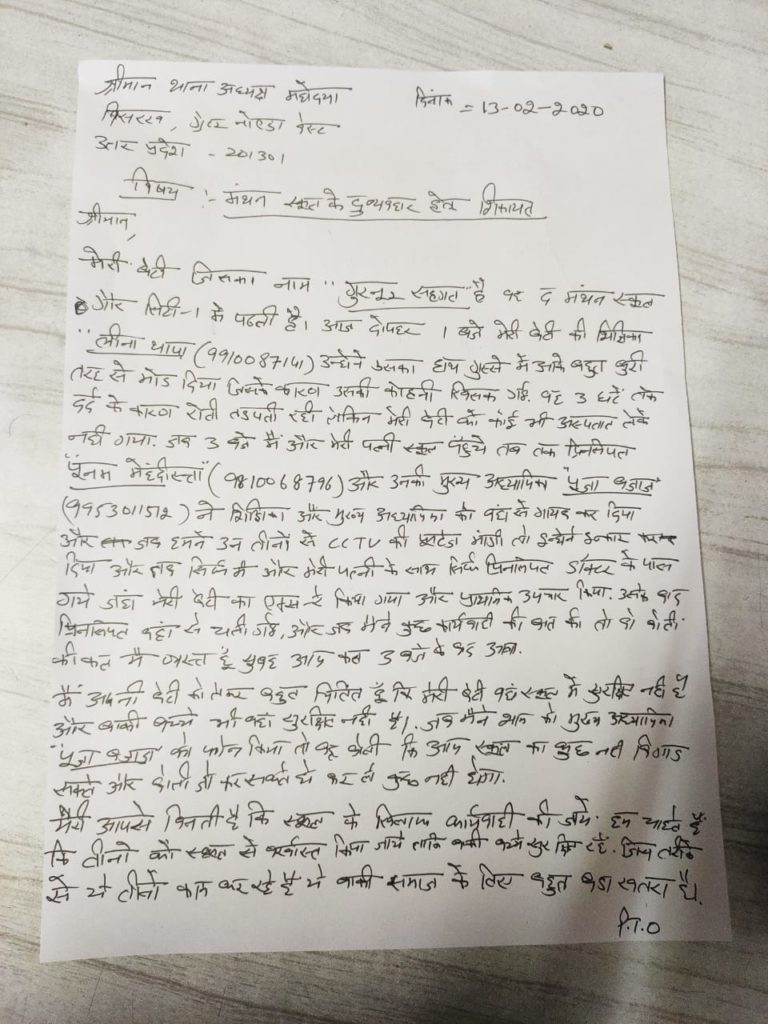 श्रीमान थाना अध्यक्ष महोदया दिनांक = 13-02-2020
बिसरख, ग्रेटर नोएडा वेस्ट
उत्तर प्रदेश - 201301
विषय :- मंथन स्कूल के दुव्यवहार हेतु शिकायत
श्रीमान,
मेरी बेटी जिसका नाम "गुरनूर सहगल" है वह द मंथन स्कूल
गौर सिटी-1 में पढती है। आज दोपहर 1 बजे मेरी बेटी की शिक्षिका
"लीना थापा (9910087141) उन्होने उसका हाथ गुस्से में आके बहुत बुरी
तरह से मोड दिया जिसके कारण उसकी कोहनी खिसक गई. वह 3 घंटे तक
दर्द के कारण रोती तडपती रही लेकिन मेरी बेटी को कोई भी अस्पताल लेके
नही गया. जब 3 बजे मैं और मेरी पत्नी स्कूल पहुंचे तब तक प्रिन्सिपल
"पूनम मेहंदीरत्ता" (9810068796) और उनकी मुख्य अध्यापिका "पूजा बजाज"
(9953011512) ने शिक्षिका और मुख्य अध्यापिका को वहां से गायब कर दिया
और जब हमने उन तीनों से CCTV की फुटेज मांगी तो इन्होने इन्कार कर
दिया और बाद सिर्फ मैं और मेरी पत्नी के साथ सिर्फ प्रिन्सिपल डॉक्टर के पास
गये जंहा मेरी बेटी का एक्स-रे किया गया और प्राथमिक उपचार किया. उसके बाद
प्रिन्सिपल वहां से चली गई, और जब मैने कुछ कार्यवाही की बात की तो वो बोली
की कल मै व्यस्त हूं सुबह आप कल 3 बजे के बाद आना.
मैं अपनी बेटी को लेकर बहुत चिंतित हूँ कि मेरी बेटी वहां स्कूल में सुरक्षित नही है
और बाकी बच्चे भी वहां सुरक्षित नही है। जब मैने शाम को मुख्य अध्यापिका
"पूजा बजाज" को फोन किया तो वह बोली कि आप स्कूल का कुछ नही बिगाड
सकते और बोली जो कर सकते हो कर लो कुछ नही होगा.
मेरी आपसे विनती है कि स्कूल के खिलाफ कार्यवाही की जाये. हम चाहते हैं
कि तीनो को स्कूल से बर्खास्त किया जाये ताकि बाकी बच्चे सुरक्षित रहें. जिस तरीके
से ये तीनो काम कर रहे हैं ये बाकी समाज के लिए बहुत बडा खतरा है।
P.T.O